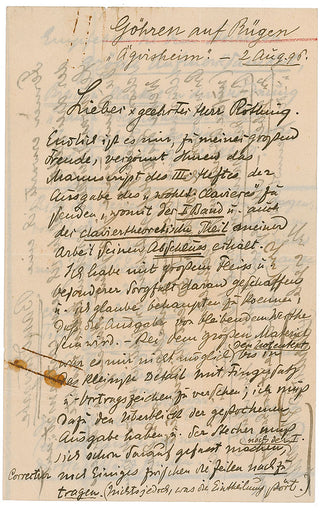 Göhren auf Rügen
"Ägirsheim". – 2 Aug. 98.
Lieber & geehrter Herr Röthing.
Endlich ist es mir, zu meiner großen
Freude, vergönnt Ihnen das
Manuscript des III. Heftes der
Ausgabe des „wohlt. Claviers" zu
senden, womit der I Band u. auch
der claviertheoretische Theil meiner
Arbeit seinen Abschluss erhält.
Ich habe mit großem Fleiss u.
besonderer Sorgfalt daran geschaffen
u. glaube behaupten zu koennen,
daß die Ausgabe von bleibendem Werthe
sein wird. – Bei dem großen Material
war es mir nicht möglich, den Notentext bis in
das kleinste Detail mit Fingersatz
u. Vortragszeichen zu versehen; ich muß
dazu den Überblick der gestochenen
Ausgabe haben, u. der Stecher muß
sich schon darauf gefasst machen, nach der I.
Correctur noch Einiges zwischen die Zeilen nachzu
tragen. (nichts jedoch, was die Eintheilung stört.)